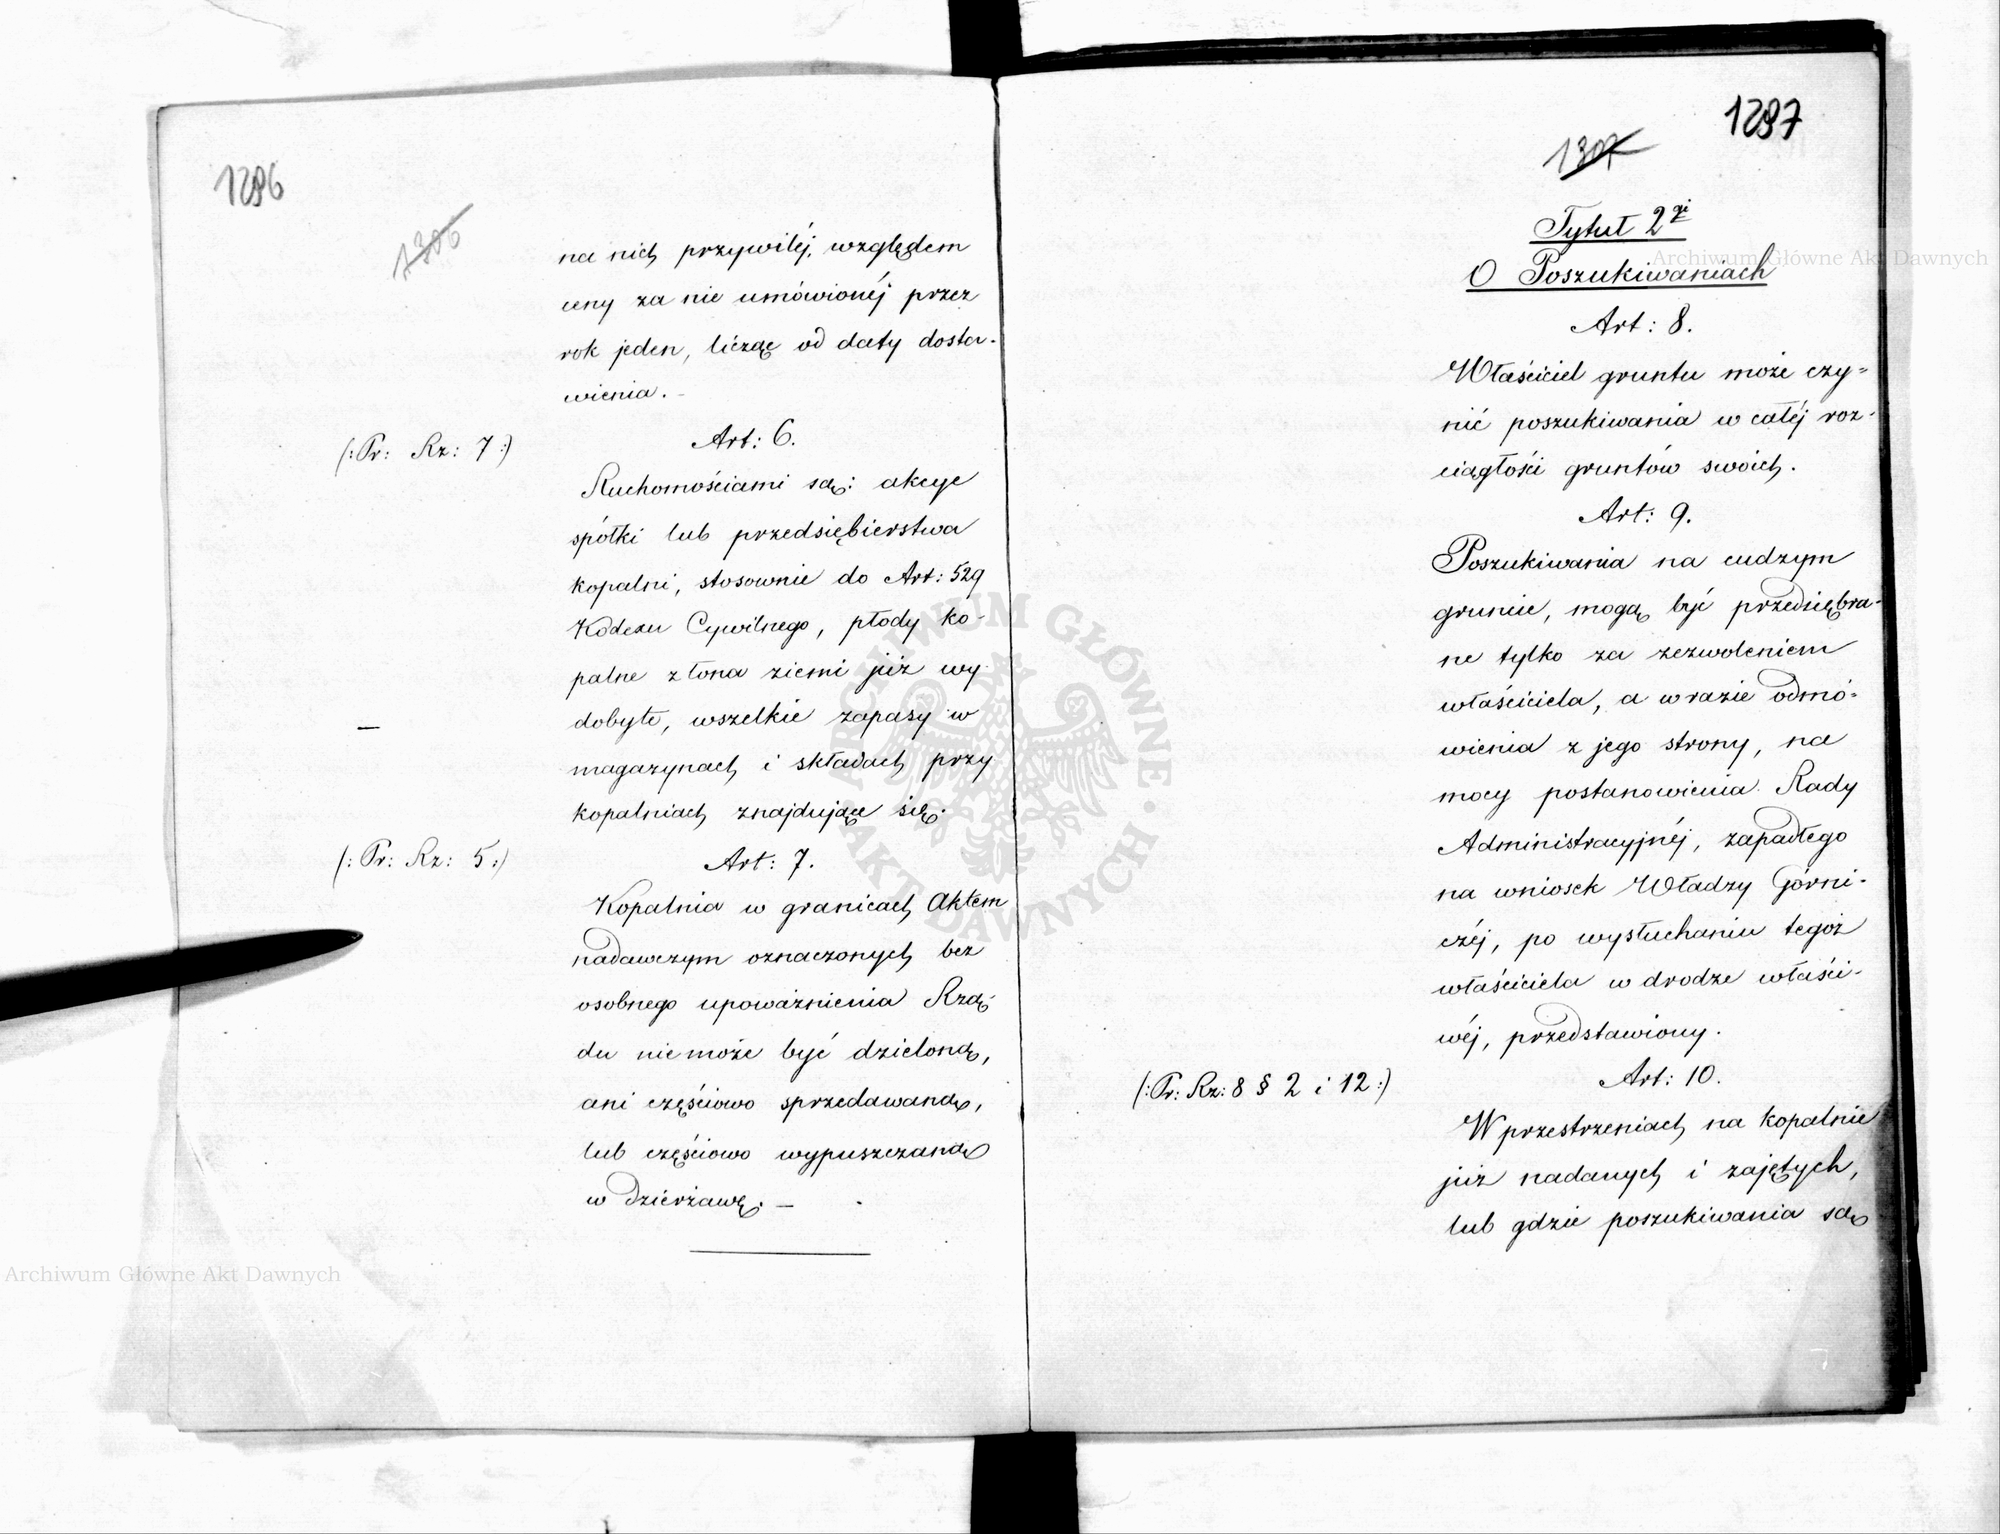 1296
1306
na nich przywilej, względem
ceny za nie umówionéj przez
rok jeden, licząc od daty dosta-
wienia. -
(: Pr: Rz: 7 :)
Art: 6.
Ruchomościami są: akcye
spółki lub przedsiębierstwa
kopalni, stosownie do Art: 529
Kodexu Cywilnego, płody ko-
palne z łona ziemi już wy-
dobyte, wszelkie zapasy w
magazynach i składach przy
kopalniach znajdujące się.
(: Pr: Rz: 5 :)
Art: 7.
Kopalnia w granicach Aktem
nadawczym oznaczonych bez
osobnego upoważnienia Rzą-
du nie może być dzieloną,
ani częściowo sprzedawaną,
lub częściowo wypuszczaną
w dzierżawę. —
1297
1307
Tytuł 2gi
O Poszukiwaniach
Art: 8.
Właściciel gruntu może czy-
nić poszukiwania w całéj roz-
ciągłości gruntów swoich.
Art: 9.
Poszukiwania na cudzym
gruncie, mogą być przedsiębra-
ne tylko za zezwoleniem
właściciela, a w razie odmó-
wienia z jego strony, na
mocy postanowienia Rady
Administracyjnéj, zapadłego
na wniosek Władzy Górni-
czéj, po wysłuchaniu tegoż
właściciela w drodze właści-
wéj, przedstawiony.
(: Pr: Rz: 8 § 2 i 12 :)
Art: 10.
W przestrzeniach na kopalnie
już nadanych i zajętych,
lub gdzie poszukiwania są
Archiwum Główne Akt Dawnych
Archiwum Główne Akt Dawnych
ARCHIWUM GŁÓWNE AKT DAWNYCH